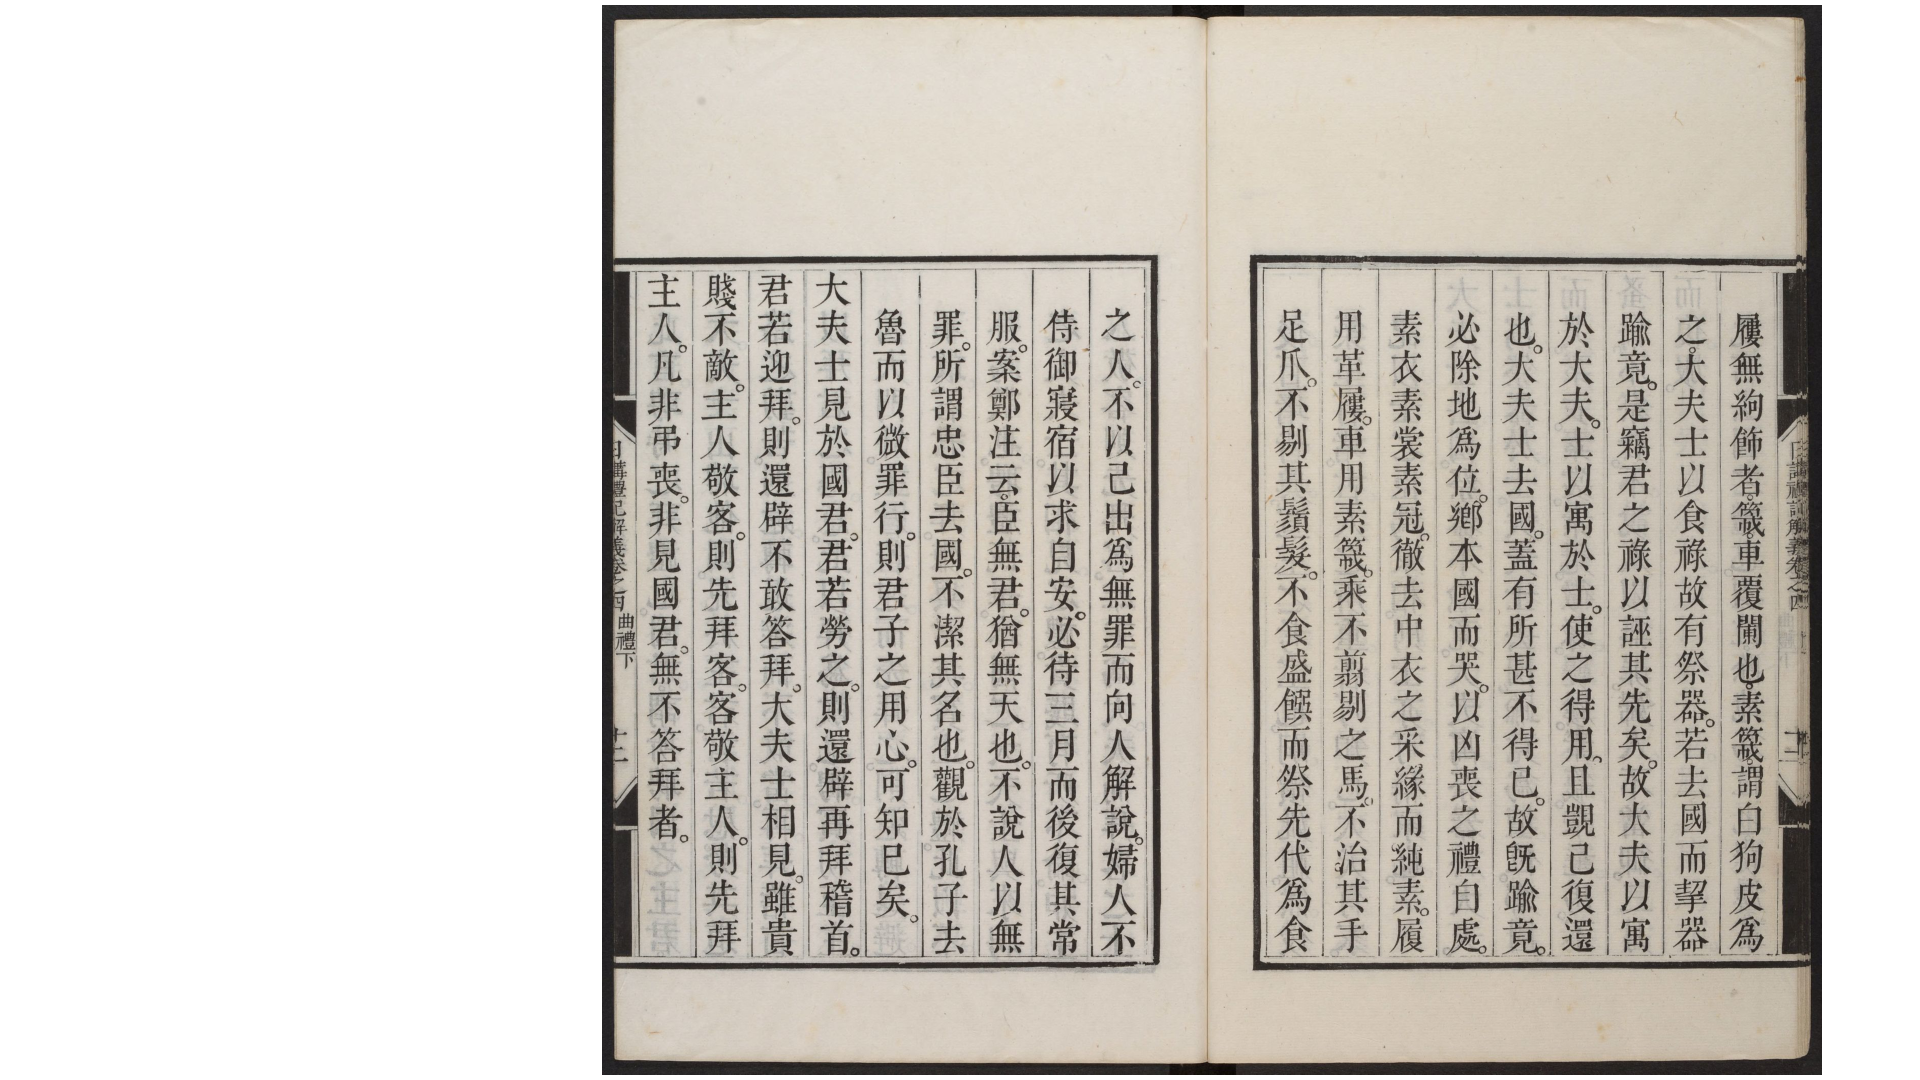 屨無絇飾者。簚車覆闌也。素簚謂白狗皮爲
之。大夫士以食祿故有祭器。若去國而挈器
踰竟。是竊君之祿以誣其先矣。故大夫以寓
於大夫。士以寓於士。使之得用。且覬己復還
也。大夫士去國。蓋有所甚不得已。故旣踰竟。
必除地爲位。鄉本國而哭。以凶喪之禮自處。
素衣素裳素冠。徹去中衣之采緣而純素。履
用革屨。車用素簚。乘不翦剔之馬。不治其手
足爪。不剔其鬚髮。不食盛饌而祭先代爲食
之人。不以己出爲無罪而向人解說。婦人不
侍御寢宿以求自安。必待三月而後復其常
服。案鄭注云。臣無君。猶無天也。不說人以無
罪。所謂忠臣去國。不潔其名也。觀於孔子去
魯而以微罪行。則君子之用心。可知巳矣。
大夫士見於國君。君若勞之。則還辟再拜稽首。
君若迎拜。則還辟不敢答拜。大夫士相見。雖貴
賤不敵。主人敬客。則先拜客。客敬主人。則先拜
主人。凡非弔喪。非見國君。無不答拜者。
日講禮記解義卷之四 曲禮下 十二